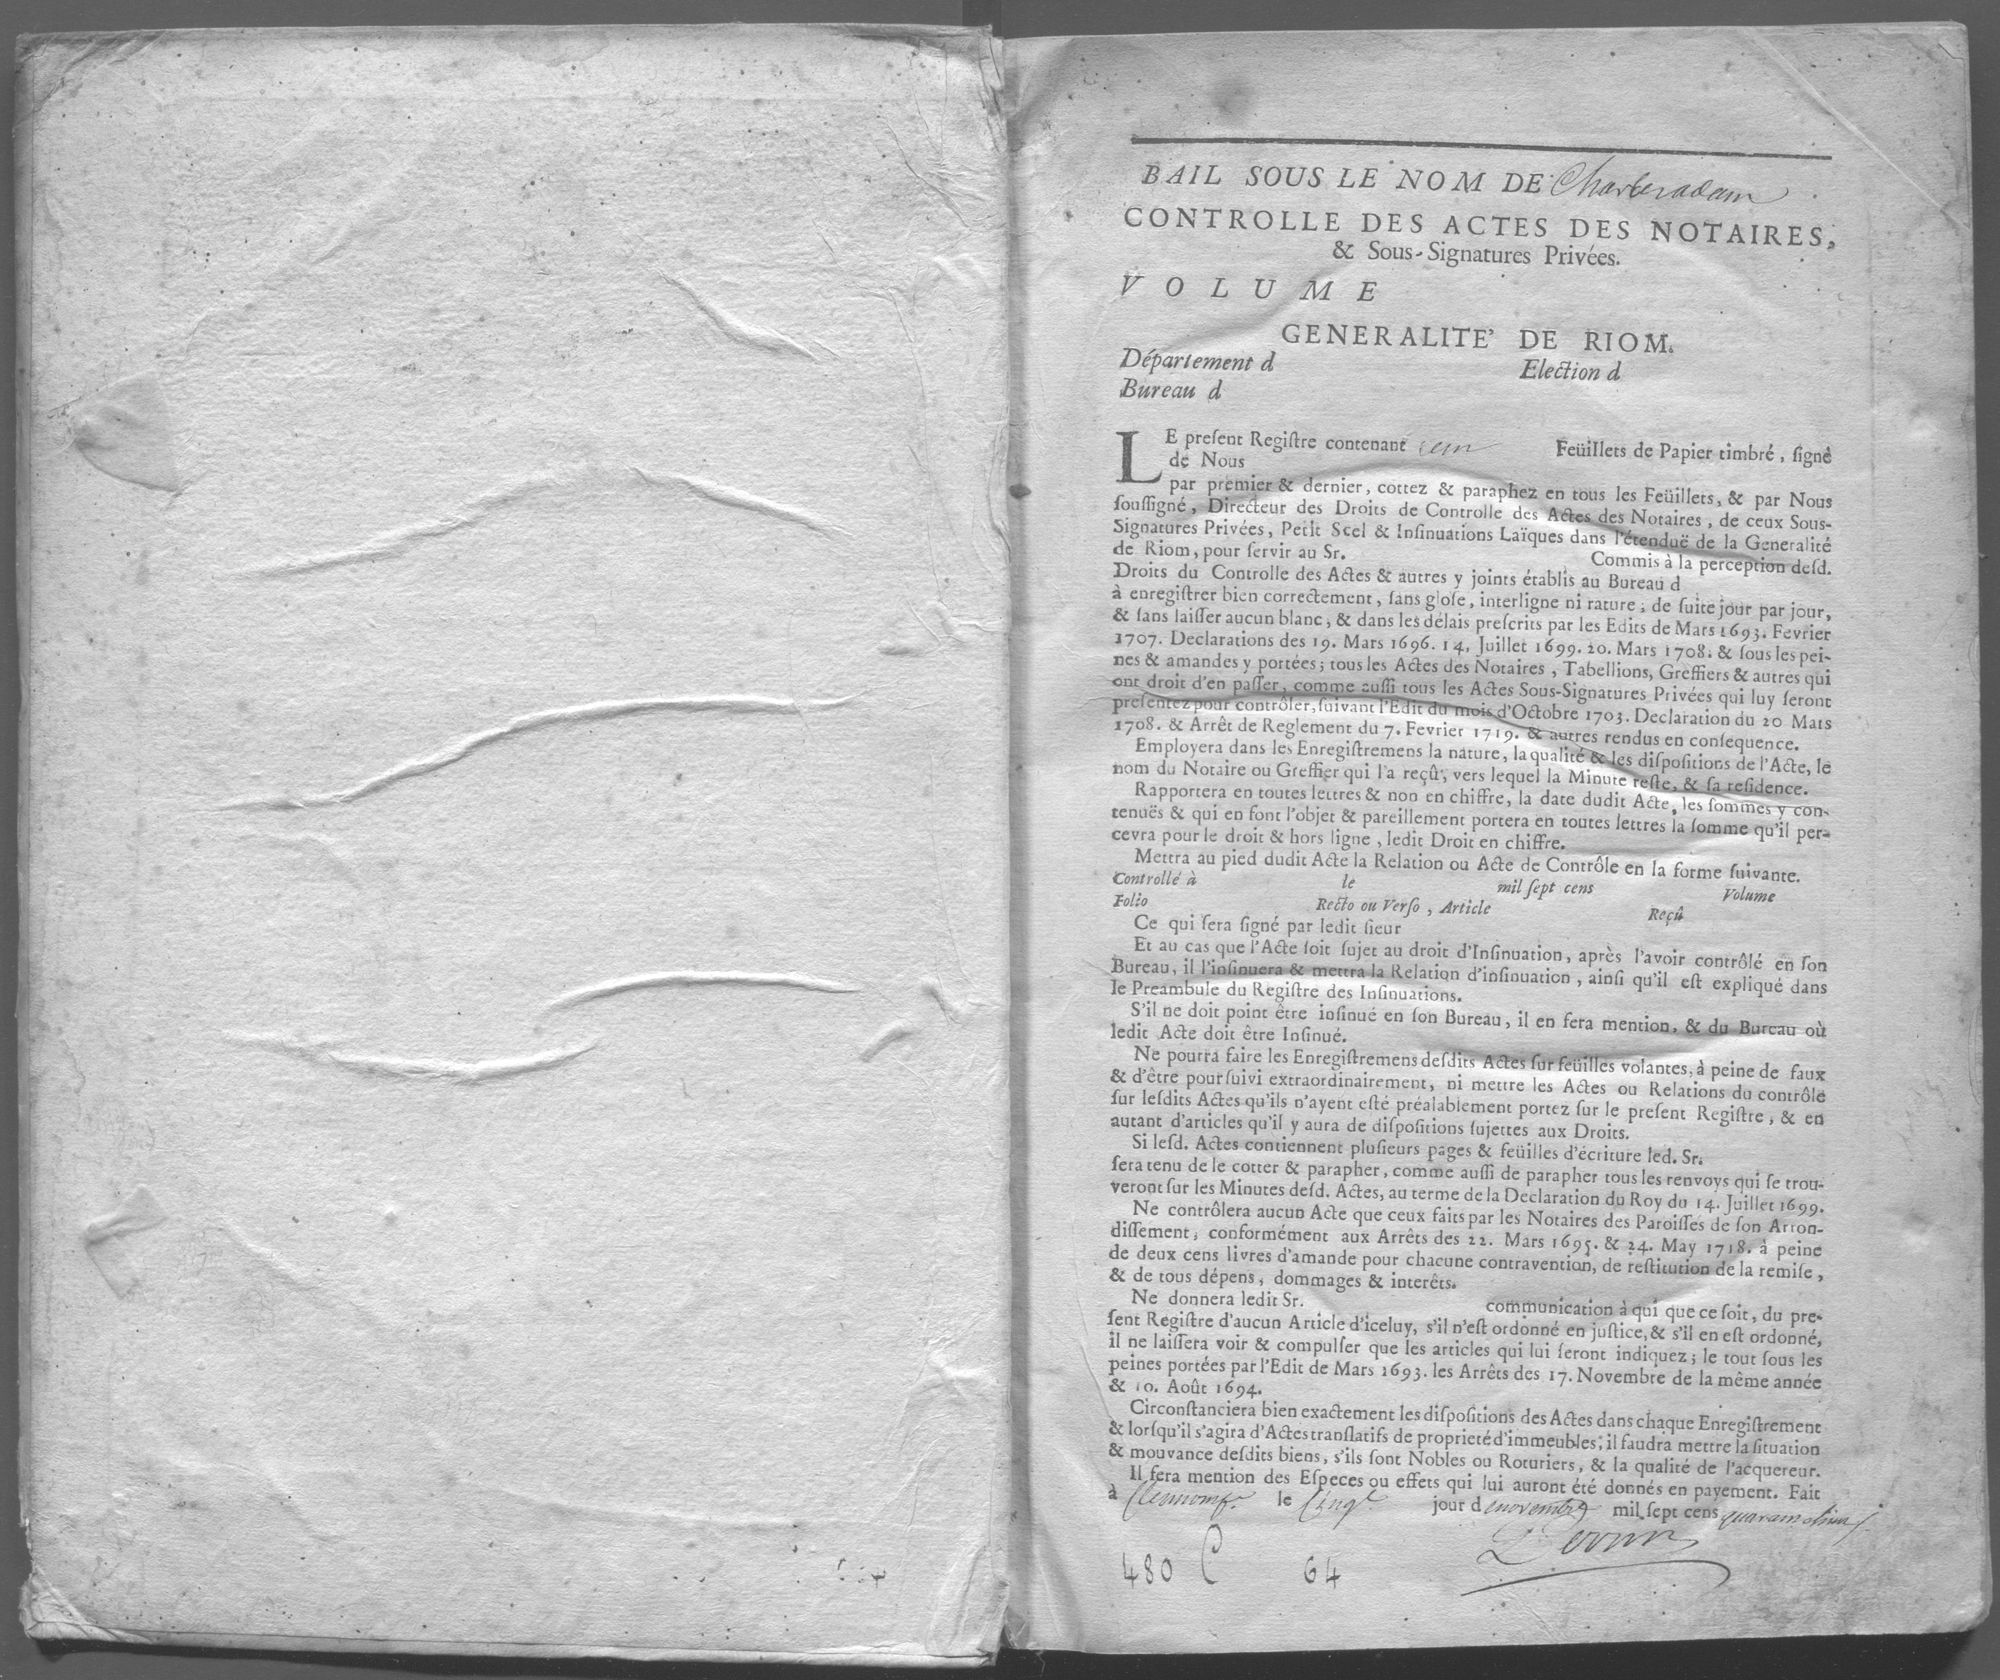 BAIL SOUS LE NOM DE
CONTROLLE DES ACTES DES NOTAIRES,
& Sous-Signatures Privées.
VOLUME
GENERALITE' DE RIOM.
Département d Election d
Bureau d
LE preſent Regiſtre contenant cent Feüillets de Papier timbré, ſigné
de Nous
par premier & dernier, cottez & paraphez en tous les Feüillets, & par Nous
ſouſſigné, Directeur des Droits de Controlle des Actes des Notaires, de ceux Sous-
Signatures Privées, Petit Scel & Inſinuations Laïques dans l'étenduë de la Generalité
de Riom, pour ſervir au Sr. Commis à la perception deſd.
Droits du Controlle des Actes & autres y joints établis au Bureau d
à enregiſtrer bien correctement, ſans gloſe, interligne ni rature; de ſuite jour par jour,
& ſans laiſſer aucun blanc, & dans les délais preſcrits par les Edits de Mars 1693. Fevrier
1707. Declarations des 19. Mars 1696. 14. Juillet 1699. 20. Mars 1708. & ſous les pei-
nes & amandes y portées; tous les Actes des Notaires, Tabellions, Greffiers & autres qui
ont droit d'en paſſer, comme auſſi tous les Actes Sous-Signatures Privées qui luy ſeront
preſentez pour contrôler, ſuivant l'Edit du mois d'Octobre 1703. Declaration du 20 Mars
1708. & Arrêt de Reglement du 7. Fevrier 1719. & autres rendus en conſequence.
Employera dans les Enregiſtremens la nature, la qualité & les diſpoſitions de l'Acte, le
nom du Notaire ou Greffier qui l'a reçû, vers lequel la Minute reſte, & ſa reſidence.
Rapportera en toutes lettres & non en chiffre, la date dudit Acte, les ſommes y con-
tenuës & qui en font l'objet & pareillement portera en toutes lettres la ſomme qu'il per-
cevra pour le droit & hors ligne, ledit Droit en chiffre.
Mettra au pied dudit Acte la Relation ou Acte de Contrôle en la forme ſuivante.
Controllé à le mil ſept cens Volume
Folio Recto ou Verſo, Article Reçû
Ce qui ſera ſigné par ledit ſieur
Et au cas que l'Acte ſoit ſujet au droit d'Inſinuation, après l'avoir contrôlé en ſon
Bureau, il l'inſinuera & mettra la Relation d'inſinuation, ainſi qu'il eſt expliqué dans
le Preambule du Regiſtre des Inſinuations.
S'il ne doit point être inſinué en ſon Bureau, il en fera mention, & du Bureau où
ledit Acte doit être Inſinué.
Ne pourra faire les Enregiſtremens deſdits Actes ſur feüilles volantes, à peine de faux
& d'être pourſuivi extraordinairement, ni mettre les Actes ou Relations du contrôle
ſur leſdits Actes qu'ils n'ayent eſté préalablement portez ſur le preſent Regiſtre, & en
autant d'articles qu'il y aura de diſpoſitions ſujettes aux Droits.
Si leſd. Actes contiennent pluſieurs pages & feüilles d'écriture led. Sr.
ſera tenu de le cotter & parapher, comme auſſi de parapher tous les renvoys qui ſe trou-
veront ſur les Minutes deſd. Actes, au terme de la Declaration du Roy du 14. Juillet 1699.
Ne contrôlera aucun Acte que ceux faits par les Notaires des Paroiſſes de ſon Arron-
diſſement, conformément aux Arrêts des 22. Mars 1695. & 24. May 1718. à peine
de deux cens livres d'amande pour chacune contravention, de reſtitution de la remiſe,
& de tous dépens, dommages & interêts.
Ne donnera ledit Sr. communication à qui que ce ſoit, du pre-
ſent Regiſtre d'aucun Article d'iceluy, s'il n'eſt ordonné en juſtice, & s'il en eſt ordonné,
il ne laiſſera voir & compulſer que les articles qui lui ſeront indiquez; le tout ſous les
peines portées par l'Edit de Mars 1693. les Arrêts des 17. Novembre de la même année
& 10. Août 1694.
Circonſtanciera bien exactement les diſpoſitions des Actes dans chaque Enregiſtrement
& lorſqu'il s'agira d'Actes tranſlatifs de proprieté d'immeubles; il faudra mettre la ſituation
& mouvance deſdits biens, s'ils ſont Nobles ou Roturiers, & la qualité de l'acquereur.
Il fera mention des Eſpeces ou effets qui lui auront été donnés en payement. Fait
à le Cinq jour de novembre mil ſept cens
480 C 64